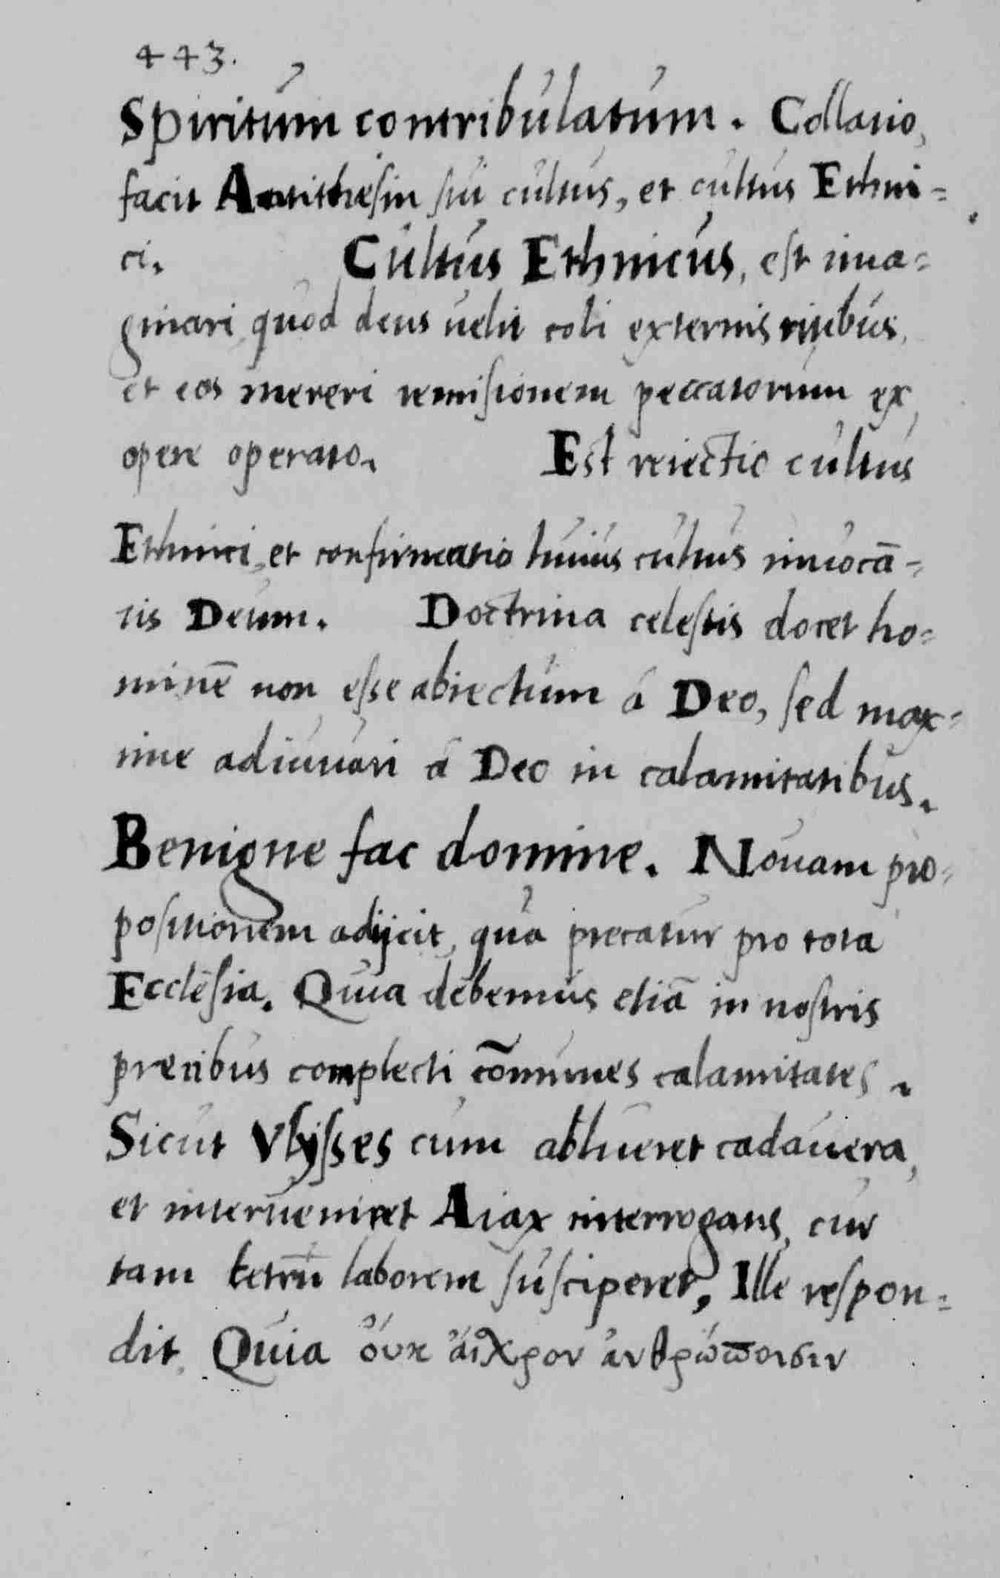 443.
Spiritum contribulatum. Collatio,
facit Antithesin sui cultus, et cultus Ethni=
ci. Cultus Ethnicus, est ima=
ginari, quod deus uelit coli externis ritibus,
et eos mereri remisionem peccatorum ex
opere operato. Est reiectio cultus
Ethnici, et confirmatio huius cultus inuocã=
tis Deum. Doctrina celestis docet ho=
minē non esse abiectum á Deo, sed max=
ime adiuuari á Deo in calamitatibus.
Benigne fac domine. Nouam pro=
positionem adijcit, qua precatur pro tota
Ecclesia. Quia debemus etiã in nostris
precibus complecti cõmunes calamitates.
Sicut Vlysses cum ablueret cadauera,
et interueniret Aiax interrogans, cur
tam tetrũ laborem susciperet, Ille respon=
dit, Quia ὄυκ ἄιχρον ἀνθρώποισιν